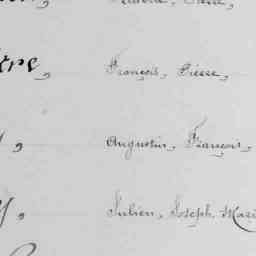 Pierre,
ère, François, Pierre,
Augustin, François,
Julien, Joseph, Mari